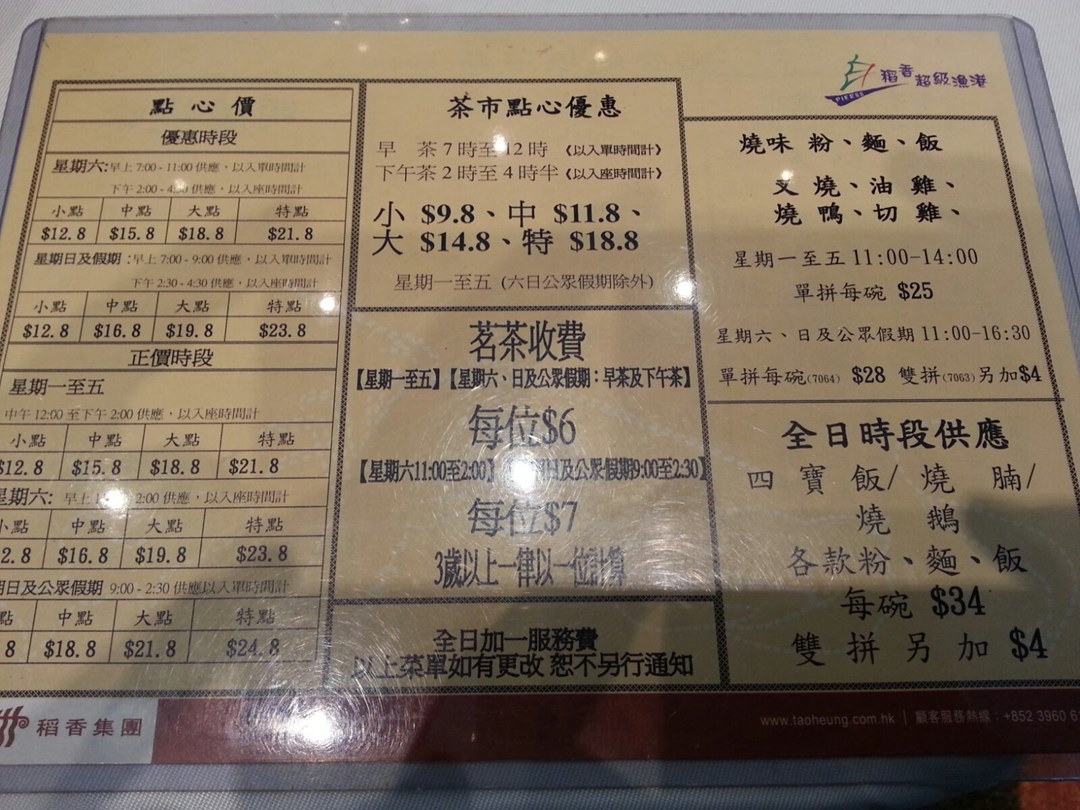 點心價
優惠時段
星期六:早上 7:00 - 11:00 供應，以入單時間計
下午 2:00 - 4: 供應，以入座時間計
小點 中點 大點 特點
$12.8 $15.8 $18.8 $21.8
星期日及假期:早上 7:00 - 9:00 供應，以入單時間計
下午 2:30 - 4:30 供應，以入座時間計
小點 中點 大點 特點
$12.8 $16.8 $19.8 $23.8
正價時段
星期一至五
中午 12:00 至下午 2:00 供應，以入座時間計
小點 中點 大點 特點
$12.8 $15.8 $18.8 $21.8
星期六: 早上 2:00 供應，以入座時間計
小點 中點 大點 特點
2.8 $16.8 $19.8 $23.8
期日及公眾假期 9:00 - 2:30 供應以入單時間計
點 中點 大點 特點
8 $18.8 $21.8 $24.8
茶市點心優惠
早 茶7時至12時 《以入單時間計》
下午茶2時至4時半《以入座時間計》
小 $9.8、中 $11.8、
大 $14.8、特 $18.8
星期一至五 (六日公眾假期除外)
茗茶收費
【星期一至五】【星期六、日及公眾假期：早茶及下午茶】
每位$6
【星期六11:00至2:00】 日及公眾假期9:00至2:30】
每位$7
3歲以上一律以一位計算
全日加一服務費
以上菜單如有更改 恕不另行通知
PIER88
稻香超級漁港
燒味 粉、麵、飯
叉 燒、油 雞、
燒 鴨、切 雞、
星期一至五11:00-14:00
單拼每碗 $25
星期六、日及公眾假期11:00-16:30
單拼每碗(7064) $28 雙拼(7063)另加$4
全日時段供應
四 寶 飯/ 燒 腩/
燒 鵝
各款粉、麵、飯
每碗 $34
雙 拼 另 加 $4
稻香集團
www.taoheung.com.hk | 顧客服務熱線：+852 3960 6